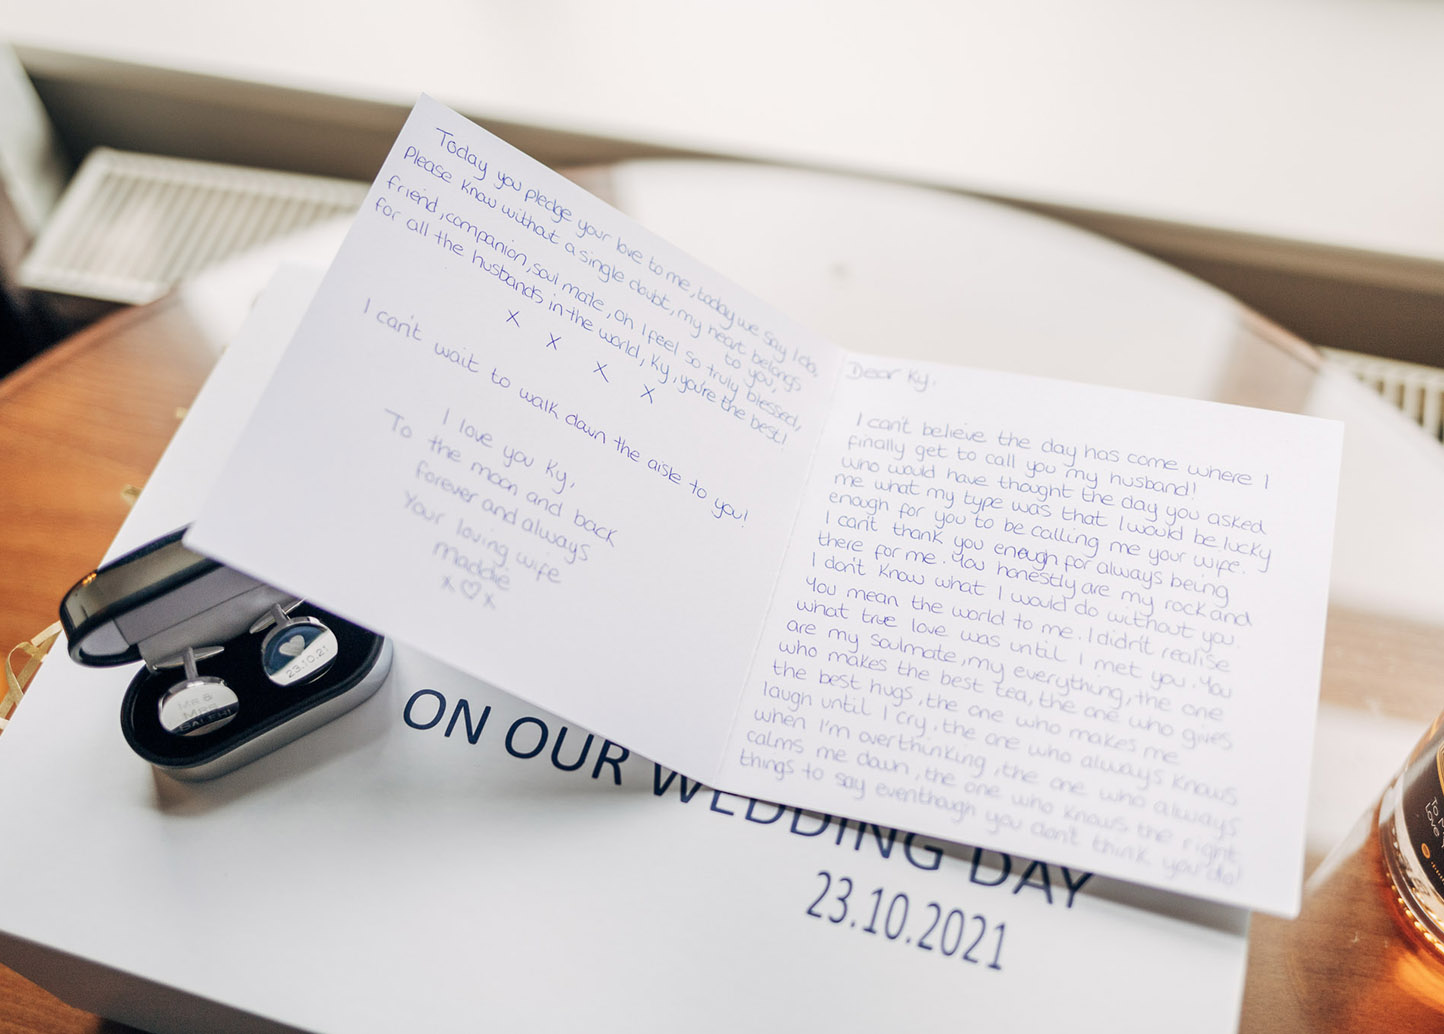 Today you pledge your love to me, today we say I do,
Please know without a single doubt, my heart belongs
to you,
friend, companion, soul mate, oh I feel so truly blessed,
for all the husbands in the world, Ky, you're the best!
x x x x
I can't wait to walk down the aisle to you!
I love you Ky,
To the moon and back
forever and always
Your loving wife
Maddie
x♡x
Dear Ky,
I can't believe the day has come where I
finally get to call you my husband!
who would have thought the day you asked
me what my type was that I would be lucky
enough for you to be calling me your wife.
I can't thank you enough for always being
there for me. You honestly are my rock and
I don't know what I would do without you.
You mean the world to me. I didn't realise
what true love was until I met you. You
are my soulmate, my everything, the one
who makes the best tea, the one who gives
the best hugs, the one who makes me
laugh until I cry, the one who always knows
when I'm overthinking, the one who always
calms me down, the one who knows the right
things to say eventhough you don't think you do!
Mr &
Mrs
23.10.21
ON OUR WEDDING DAY
23.10.2021